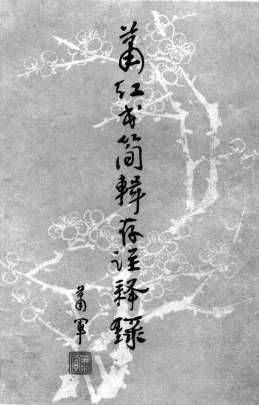 萧红书简辑存注释录
萧军